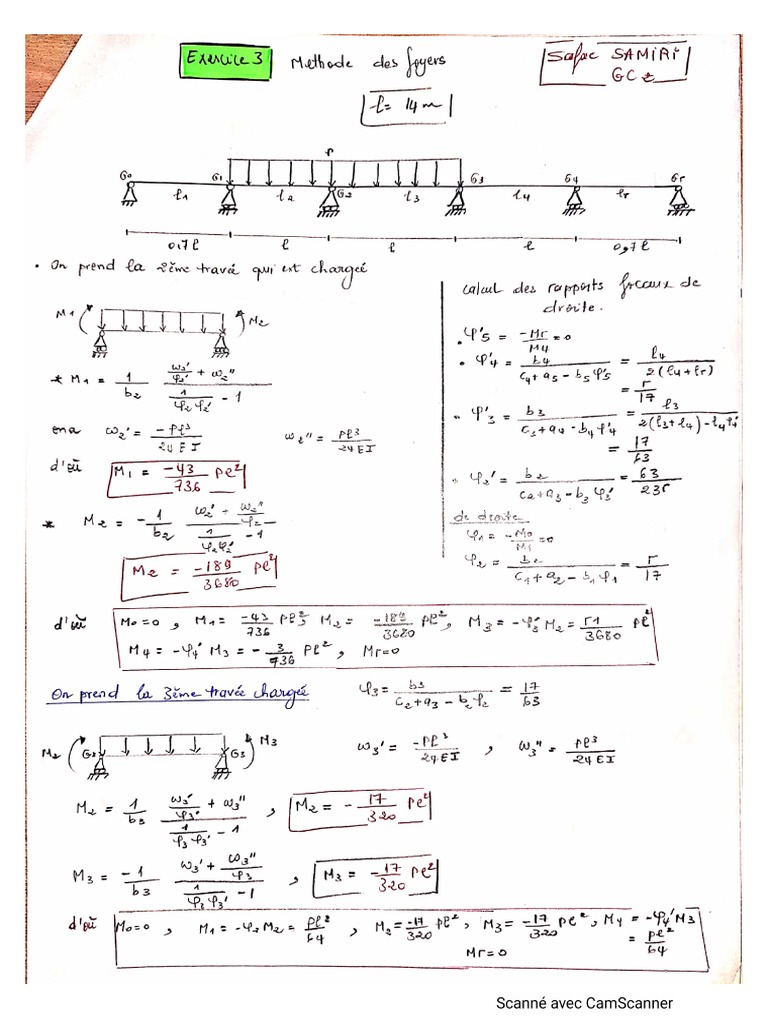 Exercice 3 Methode des foyers
Safae SAMIRI
GC 2
l = 14 m
P
G0 G1 G2 G3 G4 G5
l1 l2 l3 l4 l5
0,7l l l l 0,7l
• On prend la 2ème travée qui est chargée
M1 M2
* M1 = 1/b2 (ω2'/φ2' + ω2'')/(1/(φ2 φ2') - 1)
on a ω2' = -Pl³/24EI ω2'' = Pl³/24EI
d'où M1 = -43/736 Pl²
* M2 = -1/b2 (ω2' + ω2''/φ2)/(1/(φ2φ2') - 1)
M2 = -189/3680 Pl²
calcul des rapports focaux de
droite.
• φ'5 = -M5/M4 = 0
• φ'4 = b4/(c4 + a5 - b5 φ'5) = l4/(2(l4 + l5))
= 5/17
• φ'3 = b3/(c3 + a4 - b4 φ'4) = l3/(2(l3 + l4) - l4 φ'4)
= 17/63
• φ2' = b2/(c2 + a3 - b3 φ3') = 63/235
de droite
φ1 = -M0/M1 = 0
φ2 = b2/(c1 + a2 - b1 φ1) = 5/17
d'où M0=0 , M1 = -43/736 Pl², M2 = -189/3680 Pl², M3 = -φ3' M2 = 51/3680 Pl²
M4 = -φ4' M3 = -3/736 Pl² , M5=0
On prend la 3ème travée chargée
φ3 = b3/(c2 + a3 - b2 φ2) = 17/63
M2 G2 G3 M3
ω3' = -Pl³/24EI , ω3'' = Pl³/24EI
M2 = 1/b3 (ω3'/φ3' + ω3'')/(1/(φ3 φ3') - 1) , M2 = -17/320 Pl²
M3 = -1/b3 (ω3' + ω3''/φ3)/(1/(φ3 φ3') - 1) , M3 = -17/320 Pl²
d'où M0=0 , M1 = -φ2 M2 = Pl²/64 , M2 = -17/320 Pl² , M3 = -17/320 Pl² , M4 = -φ4' M3
= Pl²/64
M5=0
Scanné avec CamScanner